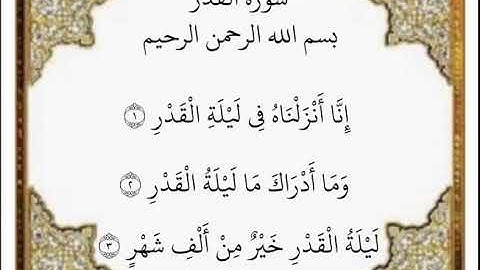 سورة القدر
بسم الله الرحمن الرحيم
إِنَّا أَنْزَلْنَاهُ فِى لَيْلَةِ الْقَدْرِ ١
وَمَا أَدْرَاكَ مَا لَيْلَةُ الْقَدْرِ ٢
لَيْلَةُ الْقَدْرِ خَيْرٌ مِنْ أَلْفِ شَهْرٍ ٣